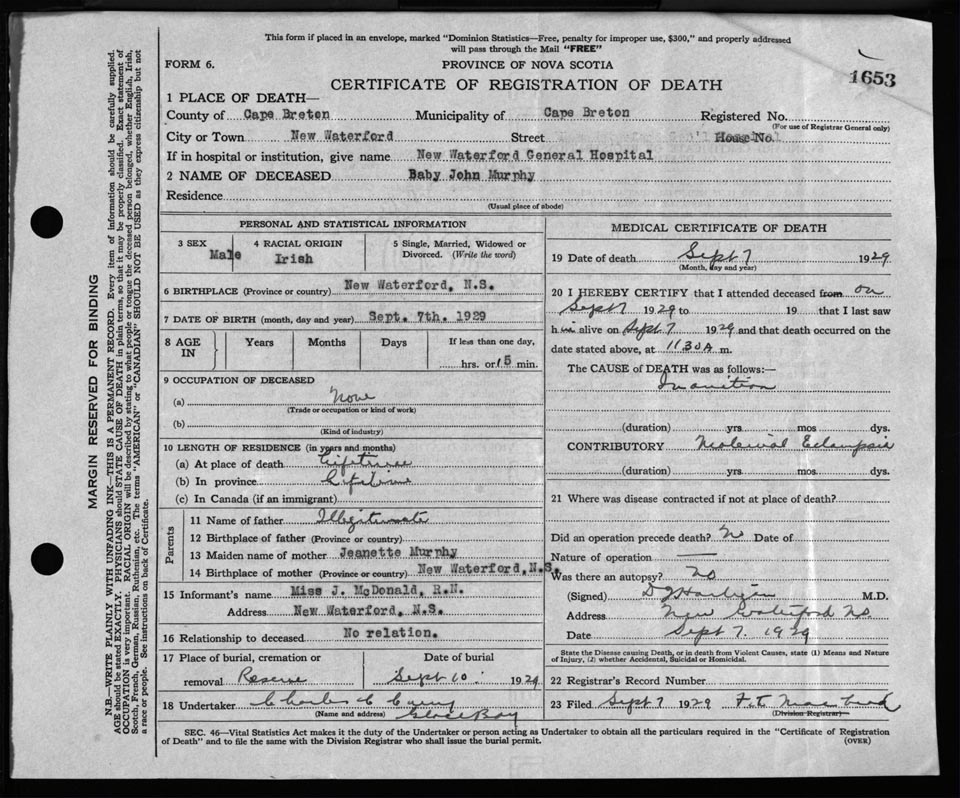 This form if placed in an envelope, marked "Dominion Statistics—Free, penalty for improper use, $300," and properly addressed
will pass through the Mail "FREE"
FORM 6.
PROVINCE OF NOVA SCOTIA
1653
CERTIFICATE OF REGISTRATION OF DEATH
1 PLACE OF DEATH—
County of Cape Breton Municipality of Cape Breton Registered No.
(For use of Registrar General only)
City or Town New Waterford Street House No.
If in hospital or institution, give name New Waterford General Hospital
2 NAME OF DECEASED Baby John Murphy
Residence
(Usual place of abode)
PERSONAL AND STATISTICAL INFORMATION
3 SEX Male
4 RACIAL ORIGIN Irish
5 Single, Married, Widowed or Divorced. (Write the word)
6 BIRTHPLACE (Province or country) New Waterford, N.S.
7 DATE OF BIRTH (month, day and year) Sept. 7th. 1929
8 AGE IN Years Months Days If less than one day,
hrs. or 15 min.
9 OCCUPATION OF DECEASED
(a) None
(Trade or occupation or kind of work)
(b)
(Kind of industry)
10 LENGTH OF RESIDENCE (in years and months)
(a) At place of death Lifetime
(b) In province Lifetime
(c) In Canada (if an immigrant)
Parents
11 Name of father Illegitimate
12 Birthplace of father (Province or country)
13 Maiden name of mother Jeanette Murphy
14 Birthplace of mother (Province or country) New Waterford, N.S.
15 Informant's name Miss J. McDonald, R.N.
Address New Waterford, N.S.
16 Relationship to deceased No relation.
17 Place of burial, cremation or Date of burial
removal Reserve Sept 10 1929
18 Undertaker Charles C Curry
(Name and address) Glace Bay
MEDICAL CERTIFICATE OF DEATH
19 Date of death Sept 7 1929
(Month, day and year)
20 I HEREBY CERTIFY that I attended deceased from on
Sept 7 1929 to 19 that I last saw
him alive on Sept 7 1929 and that death occurred on
date stated above, at 11 30 A m.
The CAUSE of DEATH was as follows:—
Inanition
(duration) yrs mos dys.
CONTRIBUTORY Maternal Eclampsia
(duration) yrs mos dys.
21 Where was disease contracted if not at place of death?
Did an operation precede death? No Date of
Nature of operation —
Was there an autopsy? No
(Signed) M.D.
Address New Waterford N.S.
Date Sept 7. 1929
State the Disease causing Death, or in death from Violent Causes, state (1) Means and Nature
of Injury, (2) whether Accidental, Suicidal or Homicidal.
22 Registrar's Record Number
23 Filed Sept 7 1929
(Division Registrar)
SEC. 46—Vital Statistics Act makes it the duty of the Undertaker or person acting as Undertaker to obtain all the particulars required in the "Certificate of Registration
of Death" and to file the same with the Division Registrar who shall issue the burial permit.
(OVER)
MARGIN RESERVED FOR BINDING
N.B.—WRITE PLAINLY WITH UNFADING INK—THIS IS A PERMANENT RECORD. Every item of information should be carefully supplied.
AGE should be stated EXACTLY. PHYSICIANS should STATE CAUSE OF DEATH in plain terms, so that it may be properly classified. Exact statement of
OCCUPATION is very important. RACIAL ORIGIN will be described by stating to what people or tongue the deceased person belonged, whether English, Irish,
Scotch, French, German, Russian, Ruthenian, etc. The terms "AMERICAN" or "CANADIAN" SHOULD NOT BE USED as they express citizenship but not
a race or people. See instructions on back of Certificate.